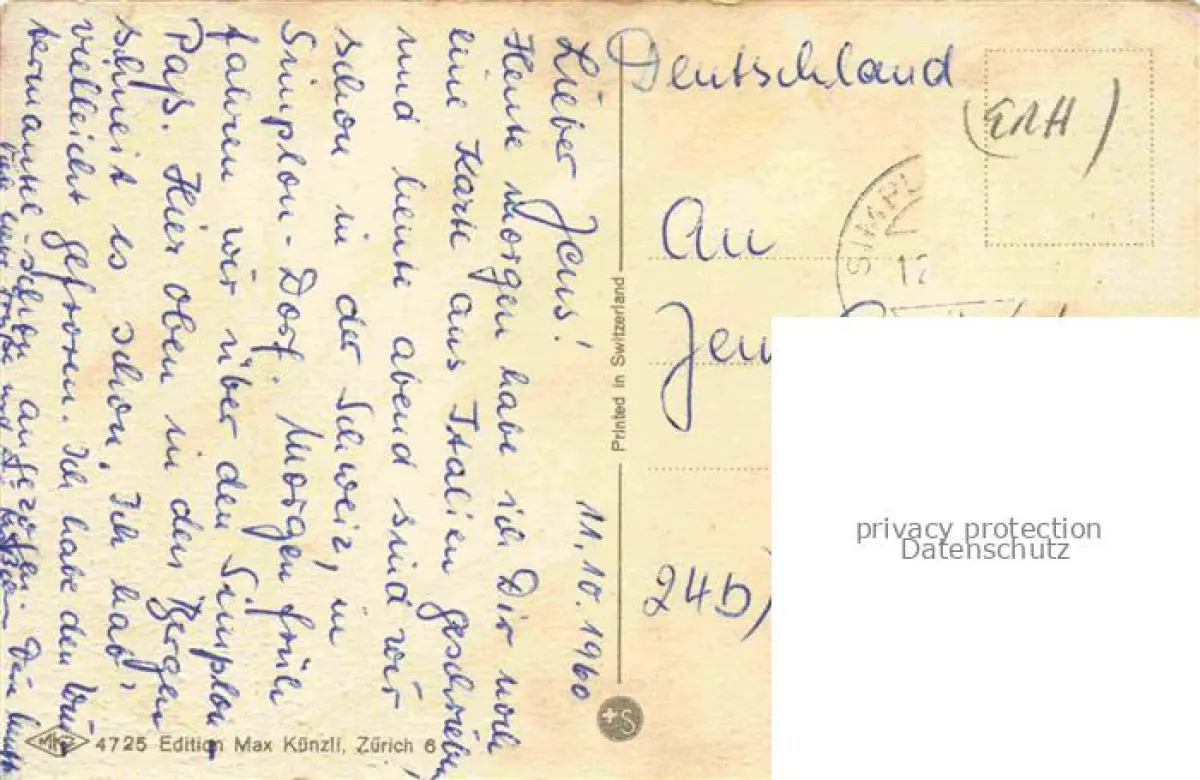 11.10.1960
Lieber Jens!
Heute morgen habe ich Dir noch
eine Karte aus Italien geschrieben,
und heute abend sind wir
schon in der Schweiz, in
Simplon-Dorf. Morgen früh
fahren wir über den Simplon-
Paß. Hier oben in den Bergen
schneit es schon. Ich hab'
vielleicht gefroren. Ich habe den Win
termantel schon angezogen.
und
Deutschland
(EMH)
SIMPL
12
An
Jen
24b)
Printed in Switzerland
+S
MKZ 4725 Edition Max Künzli, Zürich 6
privacy protection
Datenschutz